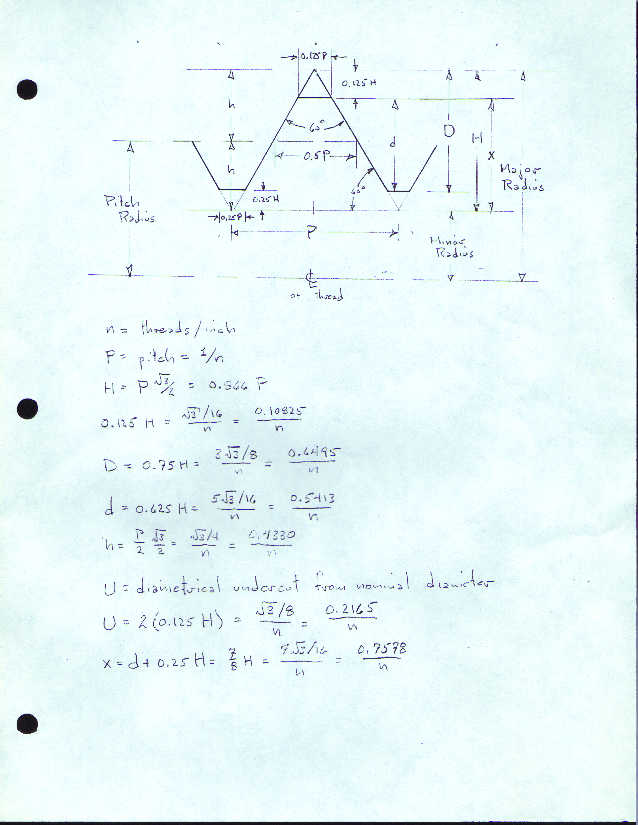 0.125P
0.125H
h
D
H
d
x
60°
0.5P
h
Major
Radius
60°
0.25H
Pitch
Radius
0.25P
P
Minor
Radius
℄
of thread
n = threads/inch
P = pitch = 1/n
H = P √3/2 = 0.866 P
0.125 H = (√3/16)/n = 0.10825/n
D = 0.75H = (3√3/8)/n = 0.6495/n
d = 0.625 H = (5√3/16)/n = 0.5413/n
h = P/2 √3/2 = (√3/4)/n = 0.4330/n
U = diametrical undercut from nominal diameter
U = 2(0.125 H) = (√3/8)/n = 0.2165/n
x = d + 0.25 H = 7/8 H = (7√3/16)/n = 0.7578/n